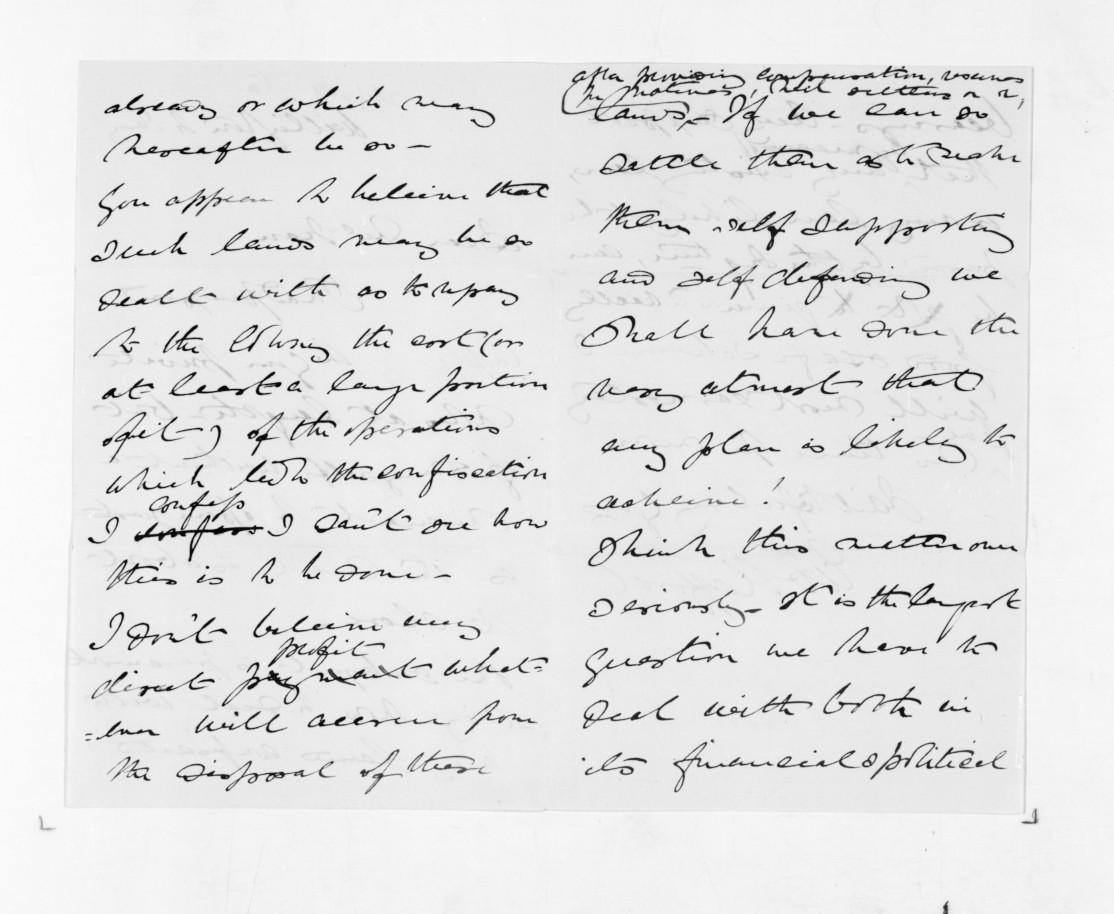 already or which may
hereafter be so —
You appear to believe that
such lands may be so
dealt with as to repay
to the Colony the cost (or
at least a large portion
of it) of the operations
which led to the confiscation
confess
I confess I can't see how
this is to be done —
I don't believe any
profit
direct payment what=
=ever will accrue from
the disposal of these
after providing compensation, reserves
(for natives, mil settlers
lands, — If we can so
settle them as to make
them self supporting
and self defending we
shall have done the
very utmost that
any plan is likely to
acheive!
Think this matter over
seriously — It is the largest
question we have to
deal with both in
its financial & political